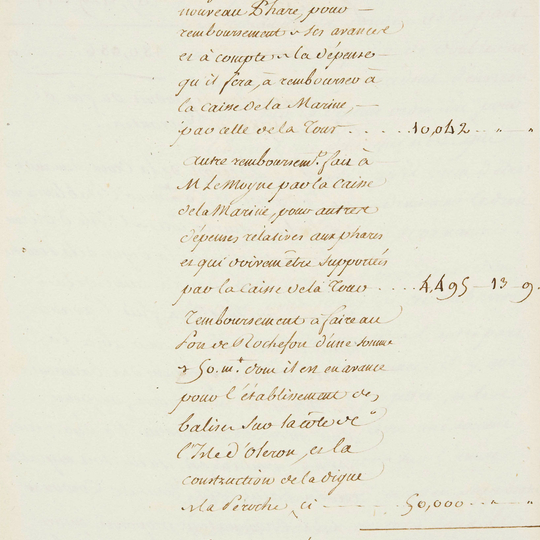 nouveau Phare, pour —
remboursement de ses avances
et à compte de la dépense
qu'il fera, à rembourser à
la caisse de la Marine, —
par celle de la Tour . . . . 10,042 . „ „
Autre remboursem.t fait à
M LeMoyne par la Caisse
de la Marine, pour autres
dépenses relatives aux phares
et qui doivent être supportées
par la Caisse de la Tour . . . . 4,495 — 13 — 9.
Remboursement à faire au
Port de Rochefort d'une somme
de 50.m.t dont il est en avance
pour l'établissement des
balises sur la côte de
l'Isle d'Oleron, et la
construction de la digue
de la Péroche, ci — 50,000 . „ „